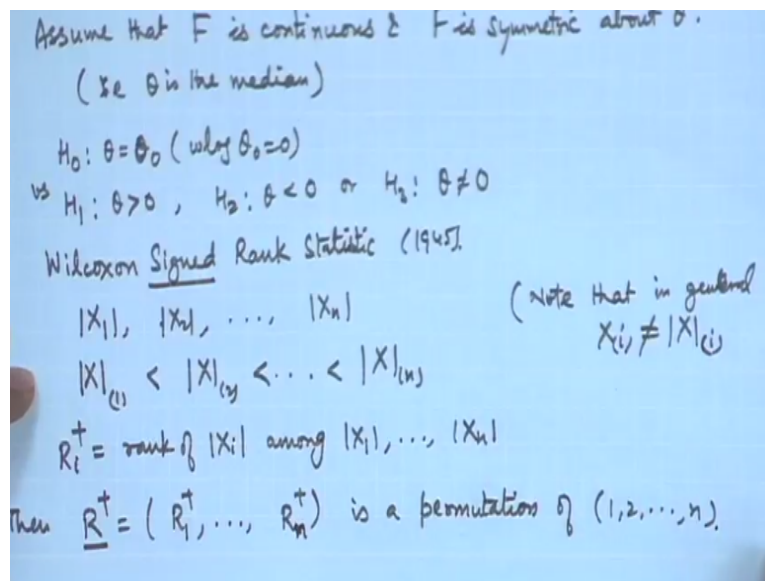 Assume that F is continuous & F is symmetric about θ.
(ie θ is the median)
H₀: θ = θ₀ (wlog θ₀=0)
vs H₁: θ>0, H₂: θ<0 or H₃: θ≠0
Wilcoxon Signed Rank Statistic (1945).
|X₁|, |X₂|, ...., |Xₙ|
(Note that in general
X₍ᵢ₎ ≠ |X|₍ᵢ₎
|X|₍₁₎ < |X|₍₂₎ < ... < |X|₍ₙ₎
Rᵢ⁺ = rank of |Xᵢ| among |X₁|, ..., |Xₙ|
Then R⁺ = (R₁⁺, ..., Rₙ⁺) is a permutation of (1,2,...,n).